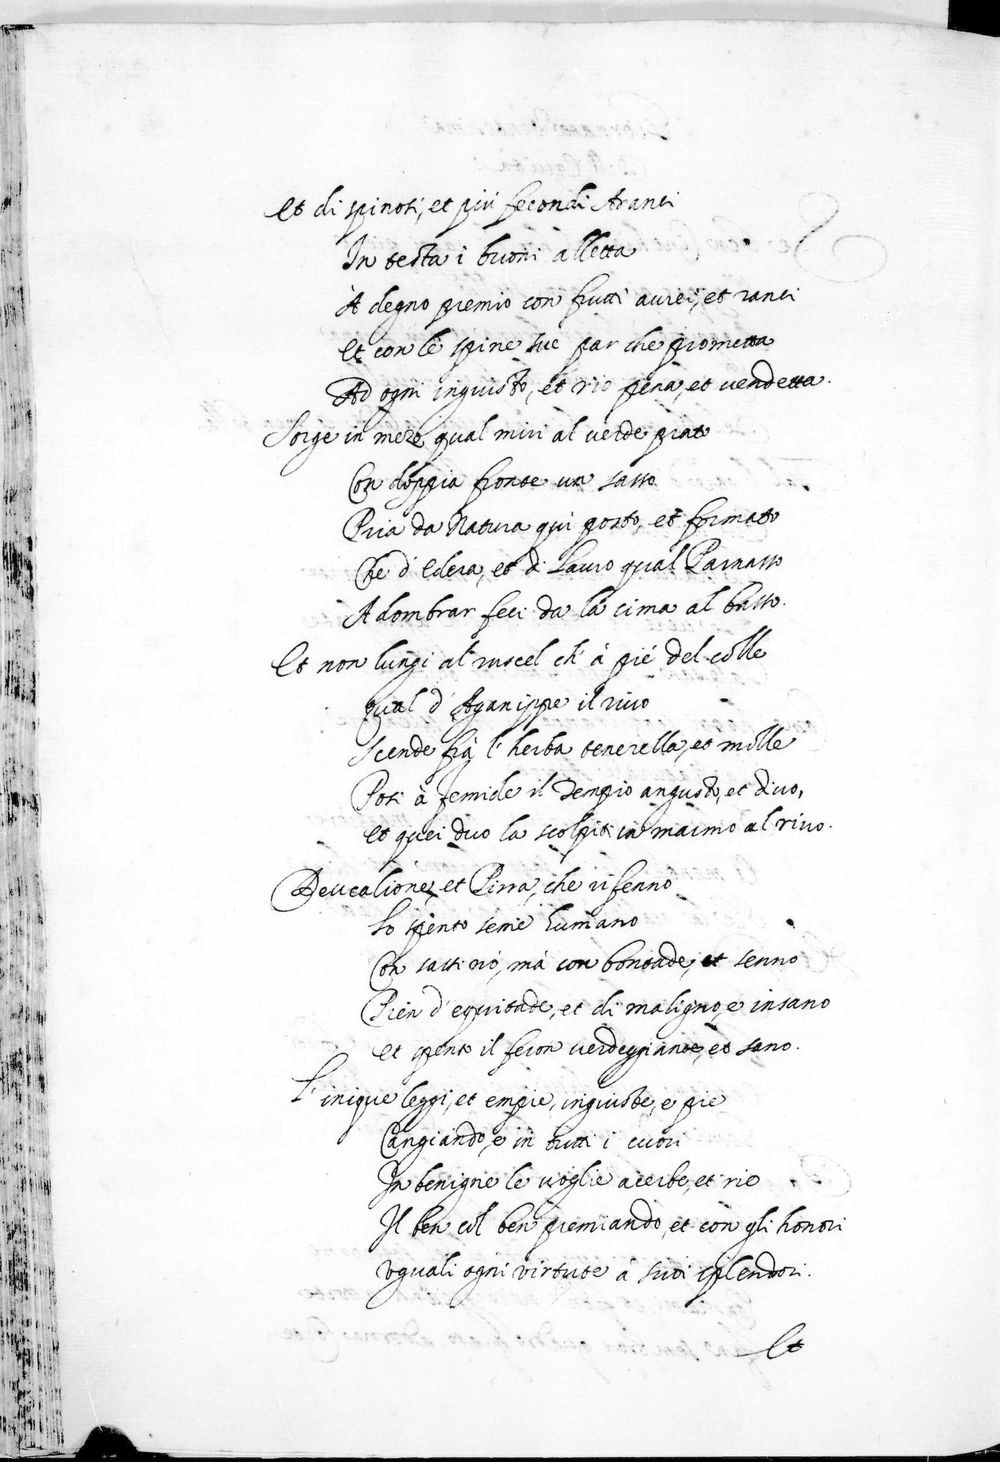 Et di spinosi, et più fecondi Aranti
In testa i buoni alletta
A degno premio con frutti aurei, et tanti
Et con le spine sue par che prometta
Ad ogni ingiusto, et rio pena, et vendetta.
Sorge in mezo qual miri al verde prato
Con doppia fronte un sasso
Pria da Natura qui posto, et formato
Che d'Edera, et di Lauro qual Parnasso
Adombrar feci da la cima al basso.
Et non lungi al ruscel ch'à piè del colle
qual d'Aganippe il rivo
Scende frà l'herba tenerella, et molle
Posi à Temide il Tempio angusto, et divo,
et quei duo la scolpiti in marmo al rivo.
Deucalione, et Pirra, che rifenno
Lo spento seme humano
Con sassi nò, mà con bontade, et senno
Pien d'equitade, et di maligno, e insano
et spento il feron verdeggiante, et sano.
L'inique leggi, et empie, ingiuste, e pie
Cangiando, e in tutti i cuori
In benigne le voglie acerbe, et rie
Il ben col ben premiando, et con gli honori
uguali ogni virtute a suoi splendori.
Et